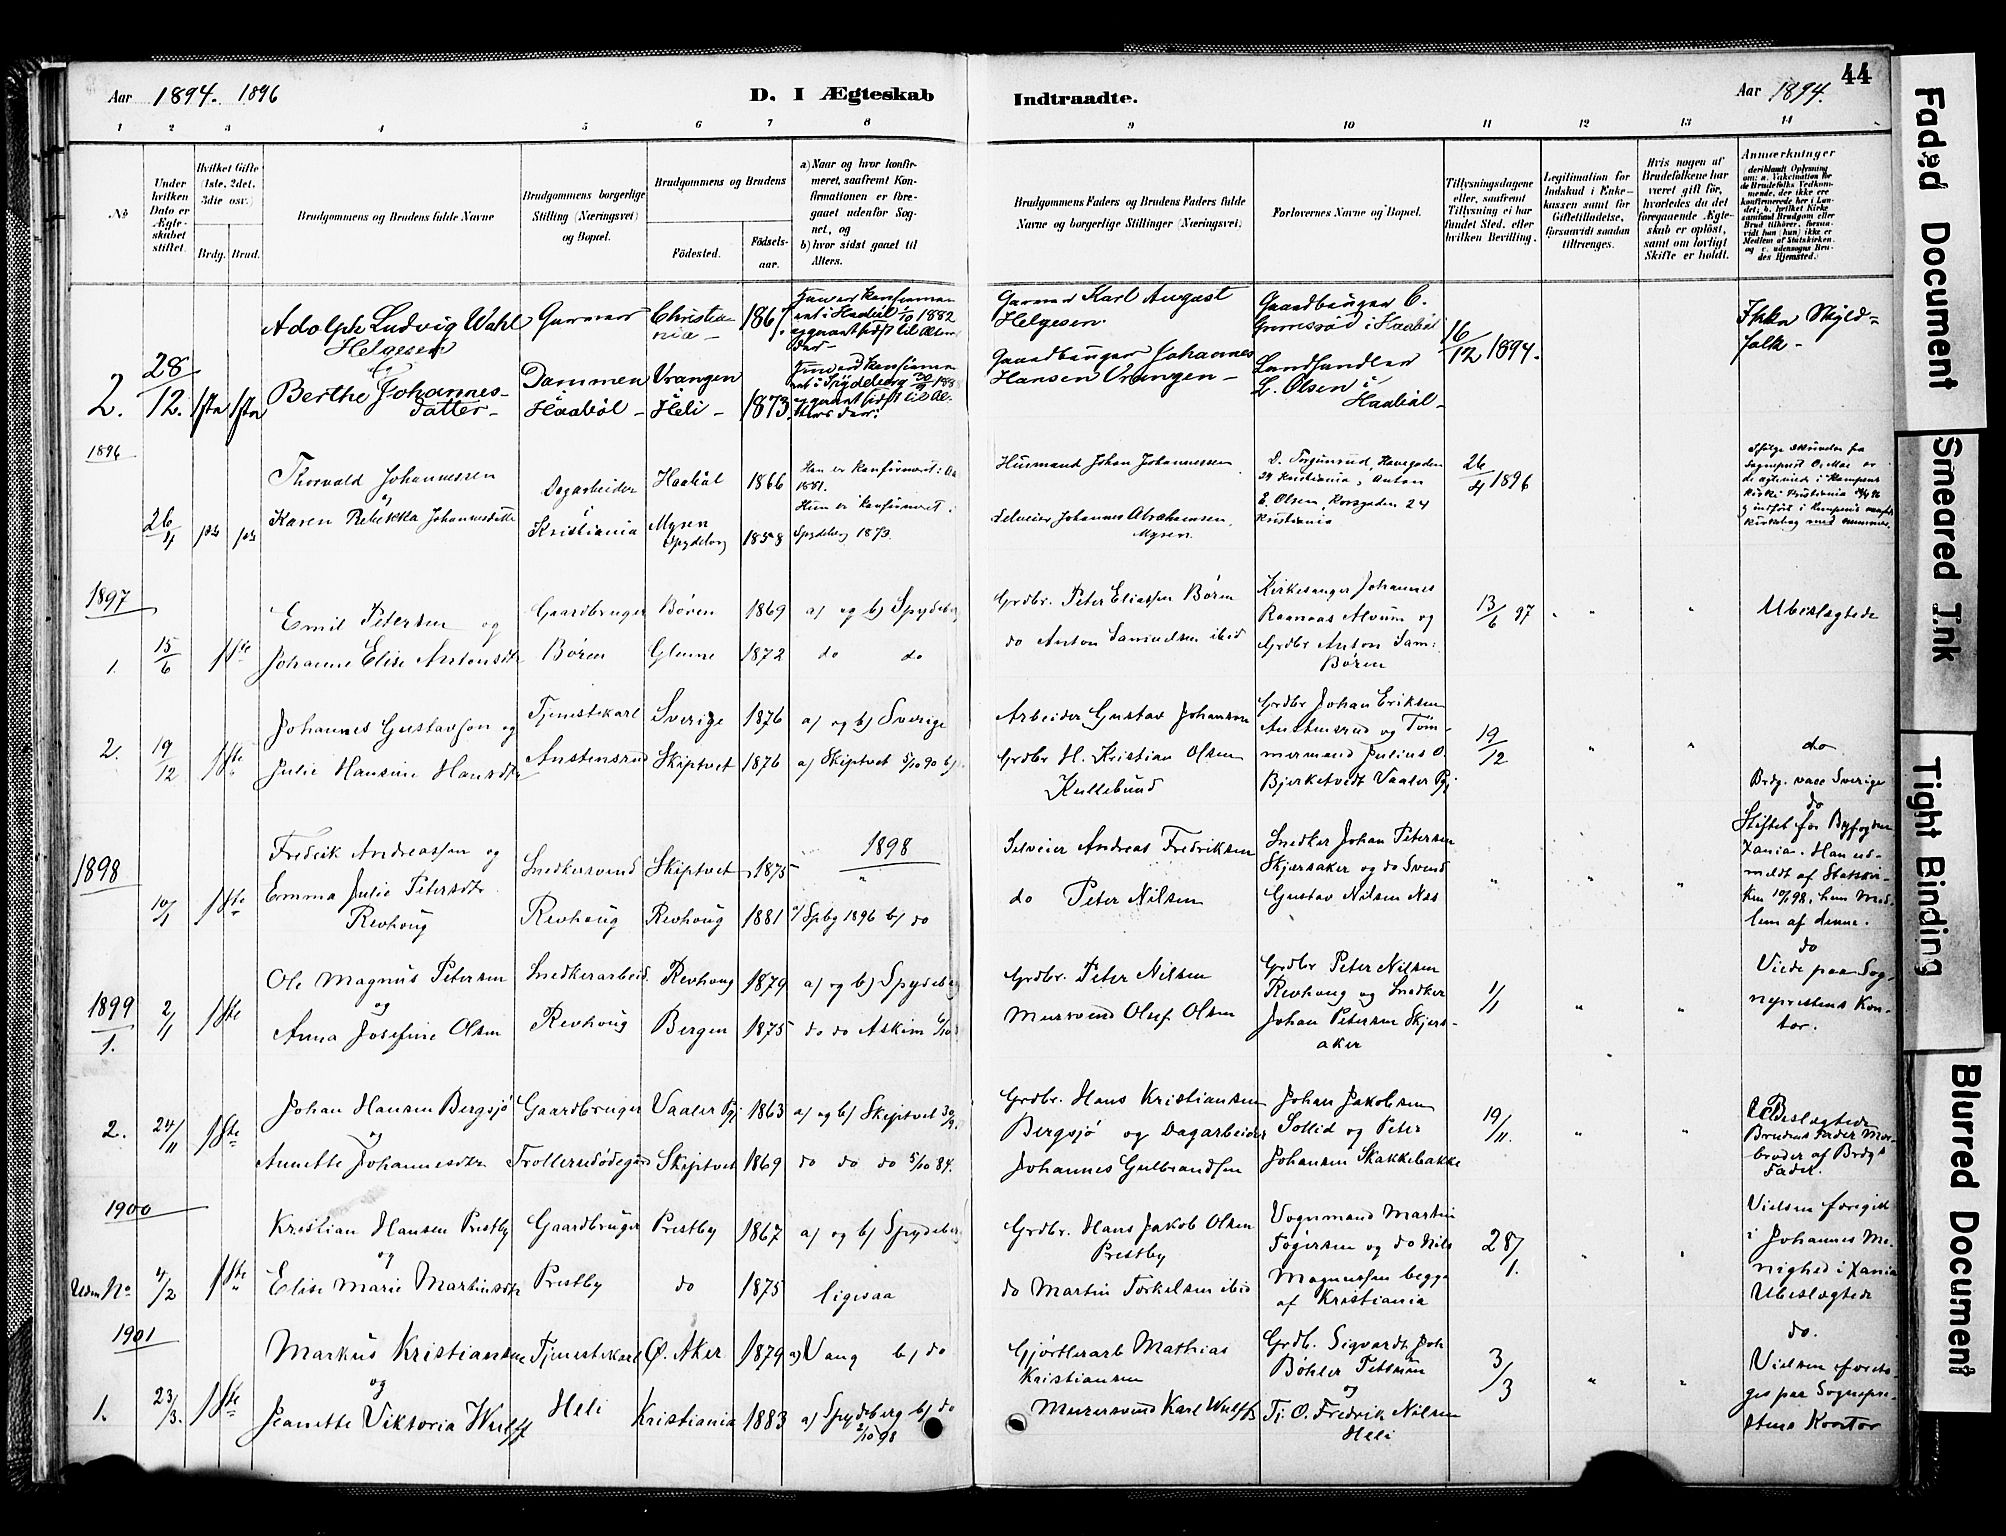 Aar 1894. 1896
D. I Ægteskab
Indtraadte.
Aar 1894.
44
1 2 3 4 5 6 7 8 9 10 11 12 13 14
No
Under hvilken Dato er Ægteskabet stiftet.
Hvilket Gifte (1ste, 2det, 3die osv.)
Brdg. Brud.
Brudgommens og Brudens fulde Navne
Brudgommens borgerlige Stilling (Næringsvei) og Bopæl.
Brudgommens og Brudens
Födested.
Födselsaar.
a) Naar og hvor konfirmeret, saafremt Konfirmationen er foregaaet udenfor Sognet, og
b) hvor sidst gaaet til Alters.
Brudgommens Faders og Brudens Faders fulde Navne og borgerlige Stillinger (Næringsvei)
Forlovernes Navne og Bopæl.
Tillysningsdagene eller, saafremt Tillysning ei har fundet Sted, efter hvilken Bevilling.
Legitimation for Indskud i Enkekassen samt for Giftetilladelse, forsaavidt saadan tiltrænges.
Hvis nogen af Brudefolkene har været gift för, hvorledes da det foregaaende Ægteskab er oplöst, samt om lovligt Skifte er holdt.
Anmærkninger
2. 28/12. 1ste 1ste
Adolph Ludvig Wahl
Helgesen
&
Berthe Johannesdatter
Garver
Dammen
Haabøl
Christiania
Vrangen
Heli
1867.
1873.
Garver Karl August
Helgesen.
Gaardbruger Johannes
Hansen Vrangen
Gaardbruger C.
i Haabøl
Landhandler
L. Olsen i
Haabøl
16/12 1894.
Ikke Skyldfolk
1896
26/4
Thorvald Johannessen
og
Karen Rebekka Johannesdatter
Dagarbeider
i
Kristiania
Haabøl
Mysen
Spydeberg
1866
1858
Han er konfirmeret i
1881.
Hun er konfirmeret i
Spydeberg 1873.
Husmand Johan Johannessen
Selveier Johannes Abrahamsen
Mysen.
Kristiania, Anton
E. Olsen, Korsgaden 24
Kristiania
26/4 1896
1897
1. 15/6 1ste
Emil Petersen og
Johanne Elise Antonsdtr
Gaardbruger
Børen
Børen
Glenne
1869
1872
a) og b) Spydeberg
do do
Grdbr. Peter Eliassen Børen
do Anton Samuelsen ibid
Kirkesanger Johannes
Raanaas Alvum og
Grdbr Anton Sam:
Børen
13/6 97
Ubeslægtede
2. 19/12 1ste
Johannes Gustavson og
Julie Hansine Hansdtr
Tjenestekarl
Austensrud
Sverige
Skiptvet
1876
1876
a) og b) Sverige
a) Skiptvet 5/10 90 b)
Arbeider Gustav Johansen
Grdbr. H. Kristian Olsen
Kullebund
Grdbr Johan Eriksen
Austensrud og Tømmermand
Julius O.
Bjerketvedt Vaaler Pgj
19/12
do
Brdg. vacc Sverige
1898
10/1 1ste
Fredrik Andreassen og
Emma Julie Petersdtr
Revhoug
Snedkersvend
Revhoug
Skiptvet
Revhoug
1875
1881
1898
a) Spbg 1896 b) do
Selveier Andreas Fredriksen
do Peter Nilsen
Snedker Johan Petersen
Skjersaker og do Svend
Gustav Nilsen Næs
do
Stiftet for Byfogden
Xania. Han udmeldt
af Statskirken
10/1 98, hun Medlem
af denne.
1899
1. 2/1 1ste
Ole Magnus Petersen
og
Anna Josefine Olsen
Snedkerarbeid.
Revhoug
Revhoug
Bergen
1879
1875
a) og b) Spydeberg
do do Askim
Grdbr. Peter Nilsen
Mursvend Oluf Olsen
Grdbr Peter Nilsen
Revhoug og Snedker
Johan Petersen Skjersaker
1/1
do
Viede paa Sognepræstens
Kontor.
2. 24/11 1ste
Johan Hansen Bergsjø
og
Annette Johannesdtr
Gaardbruger
Trollerudødegård
Vaaler Pgj
Skiptvet
1863
1869
a) og b) Skiptvet
do do do 5/10 84.
Grdbr. Hans Kristiansen
Bergsjø og Dagarbeider
Johannes Gulbrandsen
Johan Jakobsen
Sollid og Peter
Johansen Skakkebakke
19/11.
Beslægtede
Brudens Fader Morbroder
af Brdgs
Fader.
1900
Uden No 4/2 1ste
Kristian Hansen Prestby
og
Elise Marie Martinsdtr
Gaardbruger
Prestby
Prestby
do
1867
1875
a) og b) Spydeberg
ligesaa
Grdbr. Hans Jakob Olsen
Prestby
do Martin Torkelsen ibid
Vognmand Martin
Togersen og do Nils
Magnussen begge
af Kristiania
28/1.
Vielsen foregik
i Johannes Menighed
i Xania
Ubeslægtede
1901
1. 23/3. 1ste
Markus Kristiansen
og
Jeanette Viktoria Wulff
Tjenestekarl
Heli
Ø. Aker
Kristiania
1879
1883
a) Vang b) do
a) Spydeberg b) do
2/10 98
Gjørtlerarb Mathias
Kristiansen
Murersvend Karl Wulff
Grdb. Sigvardt Joh
Bøhler
og
Tj. O. Fredrik Nilsen
Heli
3/3
do.
Vielsen foretoges
paa Sognepræstens
Kontor
Faded Document
Smeared Ink
Tight Binding
Blurred Document